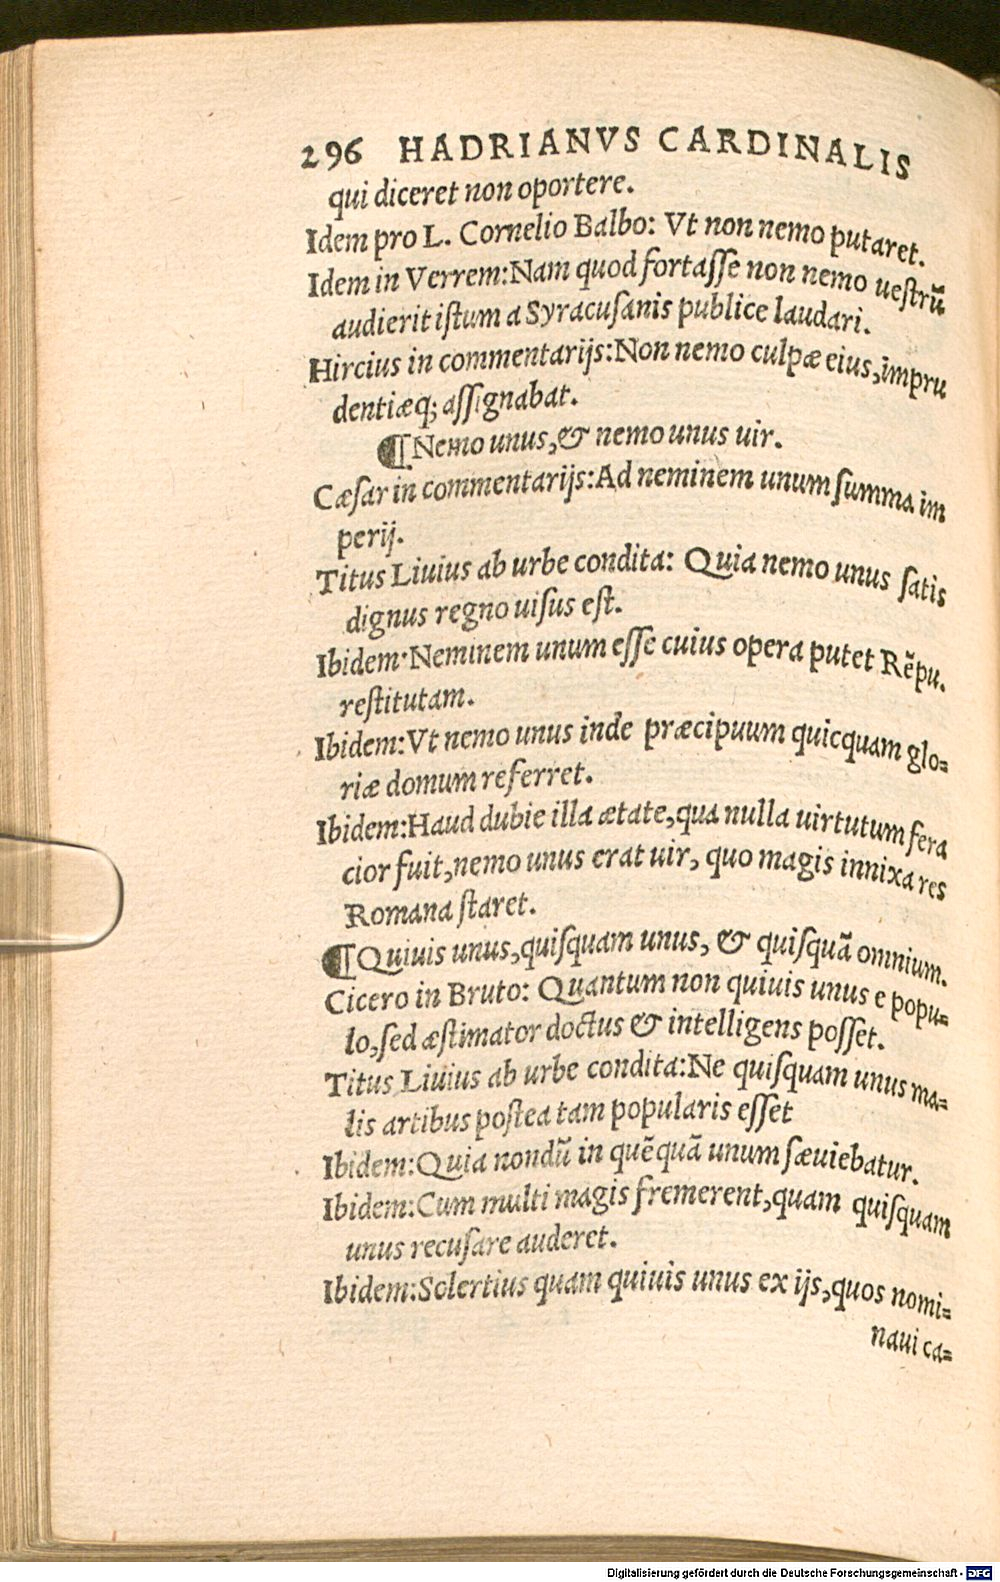 296 HADRIANVS CARDINALIS
qui diceret non oportere.
Idem pro L. Cornelio Balbo: Vt non nemo putaret.
Idem in Verrem:Nam quod fortaſſe non nemo ueſtrũ
audierit iſtum a Syracuſanis publice laudari.
Hircius in commentarijs:Non nemo culpæ eius,impru
dentiæq; aſſignabat.
¶Nemo unus,& nemo unus uir.
Cæſar in commentarijs:Ad neminem unum ſumma im
perij.
Titus Liuius ab urbe condita: Quia nemo unus ſatis
dignus regno uiſus eſt.
Ibidem·Neminem unum eſſe cuius opera putet Rẽpu.
reſtitutam.
Ibidem:Vt nemo unus inde præcipuum quicquam glo=
riæ domum referret.
Ibidem:Haud dubie illa ætate,qua nulla uirtutum fera
cior fuit,nemo unus erat uir, quo magis innixa res
Romana ſtaret.
¶Quiuis unus,quiſquam unus, & quiſquã omnium.
Cicero in Bruto: Quantum non quiuis unus e popu=
lo,ſed æſtimator doctus & intelligens poſſet.
Titus Liuius ab urbe condita:Ne quiſquam unus ma=
lis artibus poſtea tam popularis eſſet
Ibidem:Quia nondũ in quẽquã unum ſæuiebatur.
Ibidem:Cum multi magis fremerent,quam quiſquam
unus recuſare auderet.
Ibidem:Solertius quam quiuis unus ex ijs,quos nomi=
naui ca=
Digitalisierung gefördert durch die Deutsche Forschungsgemeinschaft - DFG